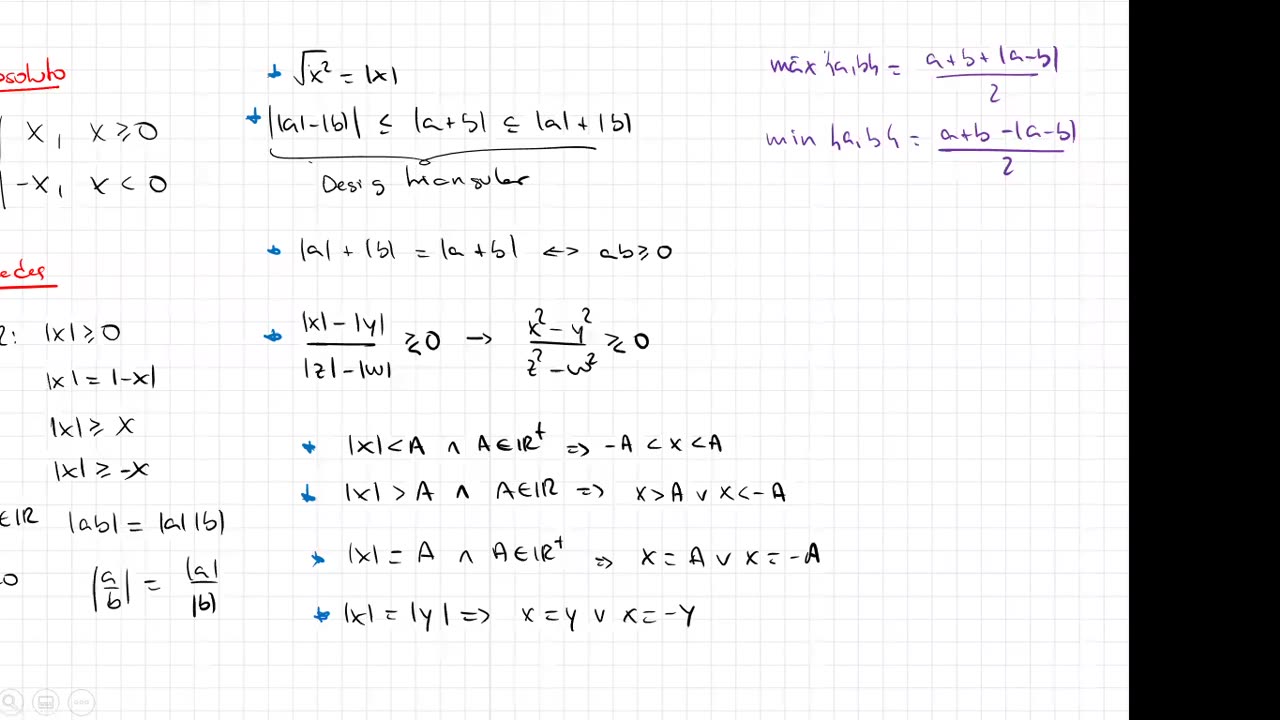 soluto
x, x ≥ 0
-x, x < 0
edes
2: |x| ≥ 0
|x| = |-x|
|x| ≥ x
|x| ≥ -x
∈ ℝ |ab| = |a||b|
0 |a/b| = |a|/|b|
√x² = |x|
||a|-|b|| ≤ |a+b| ≤ |a|+|b|
Desig triangular
|a| + |b| = |a+b| ↔ ab ≥ 0
(|x|-|y|)/(|z|-|w|) ⋛ 0 → (x²-y²)/(z²-w²) ⋛ 0
|x| < A ∧ A ∈ ℝ⁺ ⇒ -A < x < A
|x| > A ∧ A ∈ ℝ ⇒ x > A ∨ x < -A
|x| = A ∧ A ∈ ℝ⁺ ⇒ x = A ∨ x = -A
|x| = |y| ⇒ x = y ∨ x = -y
máx {a,b} = (a+b+|a-b|)/2
min {a,b} = (a+b-|a-b|)/2